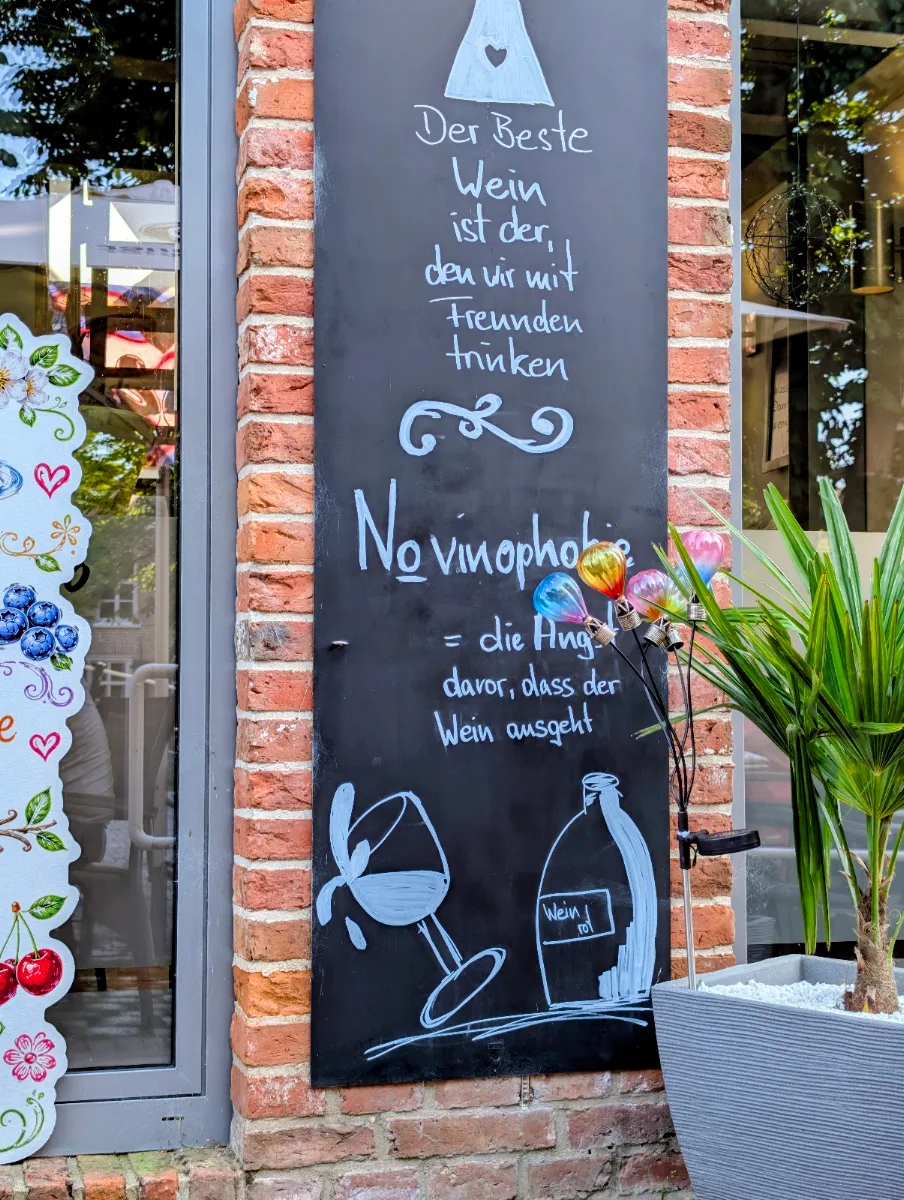 Der Beste
Wein
ist der,
den wir mit
Freunden
trinken
No vinophobie
= die Angst
davor, dass der
Wein ausgeht
Wein
rot
e